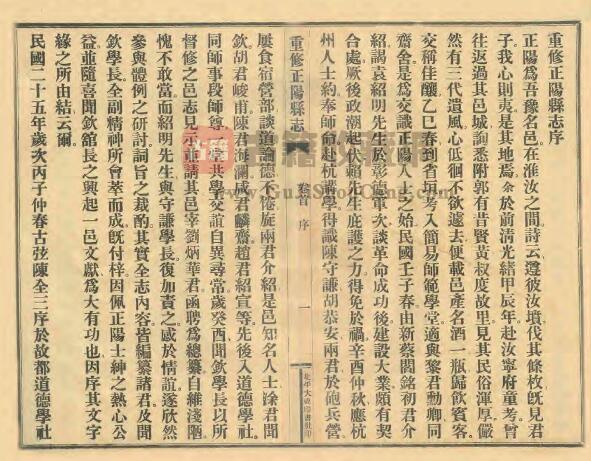 重修正陽縣志序
正陽爲吾豫名邑在淮汝之間詩云遵彼汝墳伐其條枚旣見君
子我心則夷是其地焉余於前清光緒甲辰年赴汝寧府童考曾
往返過其邑城詢悉附郭有昔賢黃叔度故里見其民俗渾厚儼
然有三代遺風心低徊不欲遽去便載邑產名酒一瓶歸飲賓客
交稱佳釀乙巳春到省垣考入簡易師範學堂適與黎君勳卿同
齋舍是爲交識正陽人之始民國壬子春由新蔡閻銘初君介
紹謁袁紹明先生於彰德軍次談革命成功後建設大業頗有契
合處厥後政潮起伏賴先生庇護之力得免於禍辛酉仲秋應杭
州人士約奉師命赴杭講學得識陳守謙胡恭安兩君於砲兵營
重修正陽縣志
卷首 序
一
北平大成印書社印
屢食宿營部談道論德不倦旋兩君介紹是邑知名人士涂君聞
欽胡君峻甫陳君海瀾咸君麟齋趙君紹宣等先後入道德學社
同師事段師尊一堂共學交誼自異尋常歲癸酉聞欽學長以所
督修之邑志見示並請其邑宰劉炳華君函聘爲總纂自維淺陋
愧不敢當而紹明先生與守謙學長復加責之感於情誼遂欣然
參與體例之研討詞旨之裁酌其實全志內容皆編纂諸君及聞
欽學長全副精神所會萃而成旣付梓因佩正陽士紳之熱心公
益並隨喜聞欽舘長之興起一邑文獻爲大有功也因序其文字
緣之所由結云爾
民國二十五年歲次丙子仲春古弦陳全三序於故都道德學社